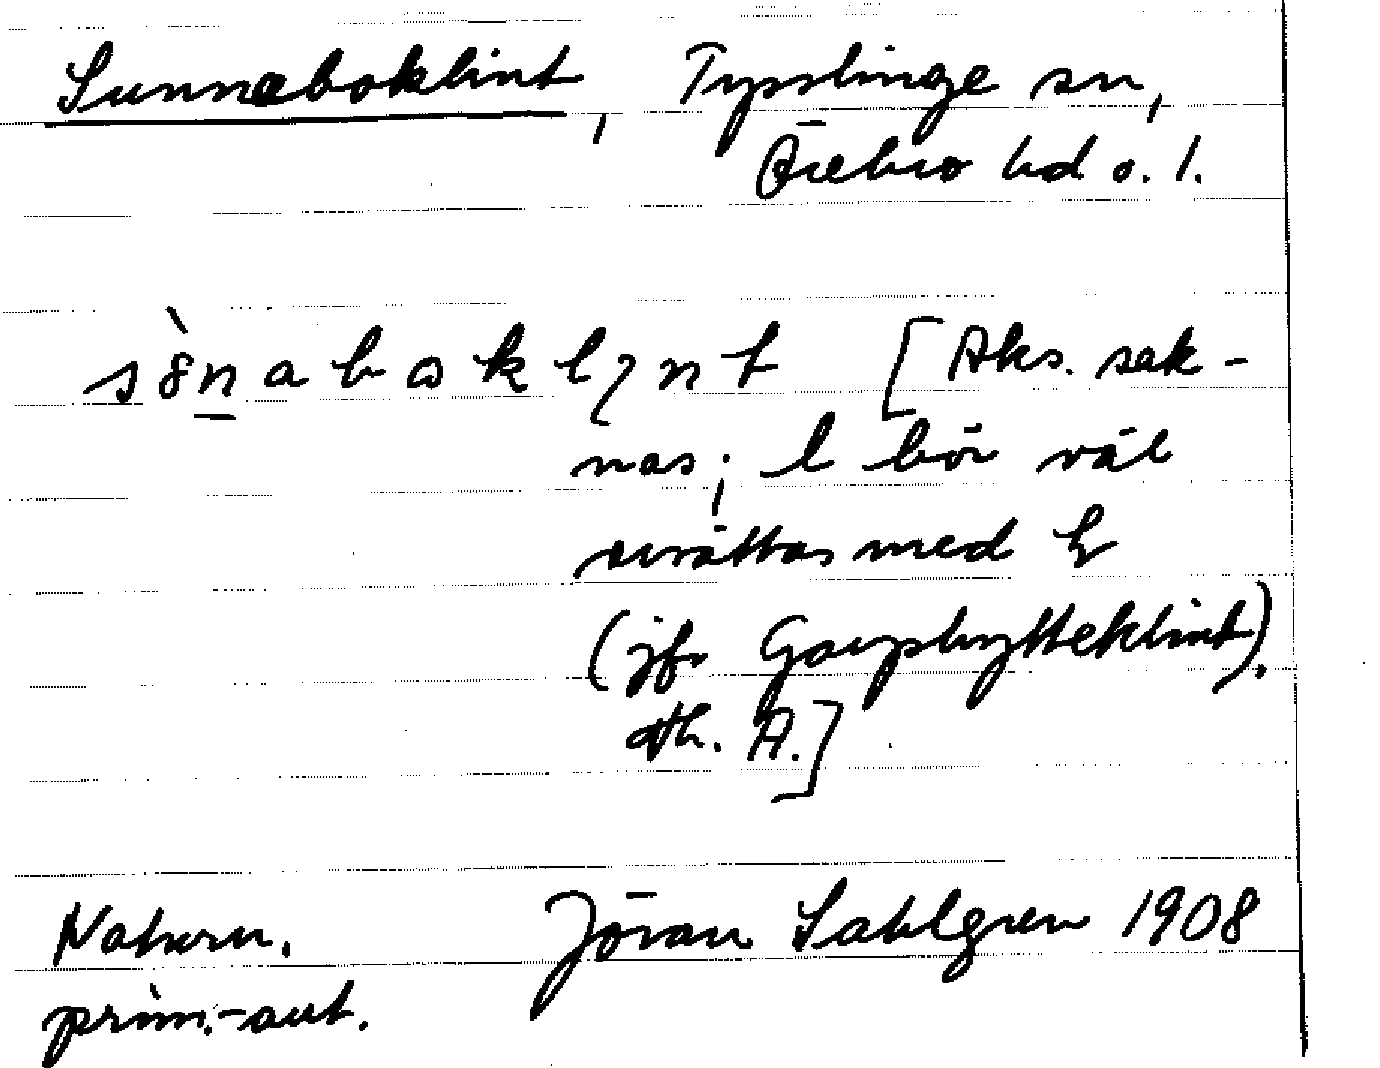 Sunneboklint, Tysslinge sn,
Örebro hd o. l.
sò̀n̲aboklint [Aks. sak-
nas; l bör väl
ersättas med
(jfr Garphytteklint).
A.]
Naturn. Jöran Sahlgren 1908
prim.-aut.